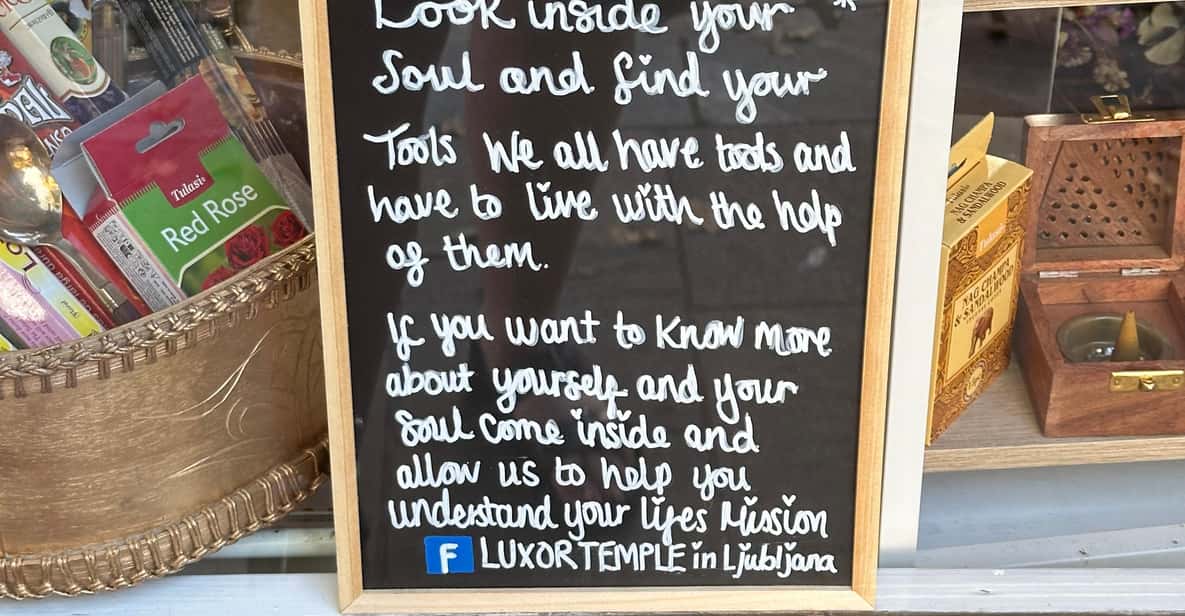 Look inside your *
Soul and find your
Tools We all have tools and
have to live with the help
of them.
If you want to know more
about yourself and your
Soul Come inside and
allow us to help you
understand your lifes Mission
F LUXOR TEMPLE in Ljubljana
Tulasi
Red Rose
NAG CHAMPA
& SANDALWOOD
NAG CHAMPA
& SANDALWOOD